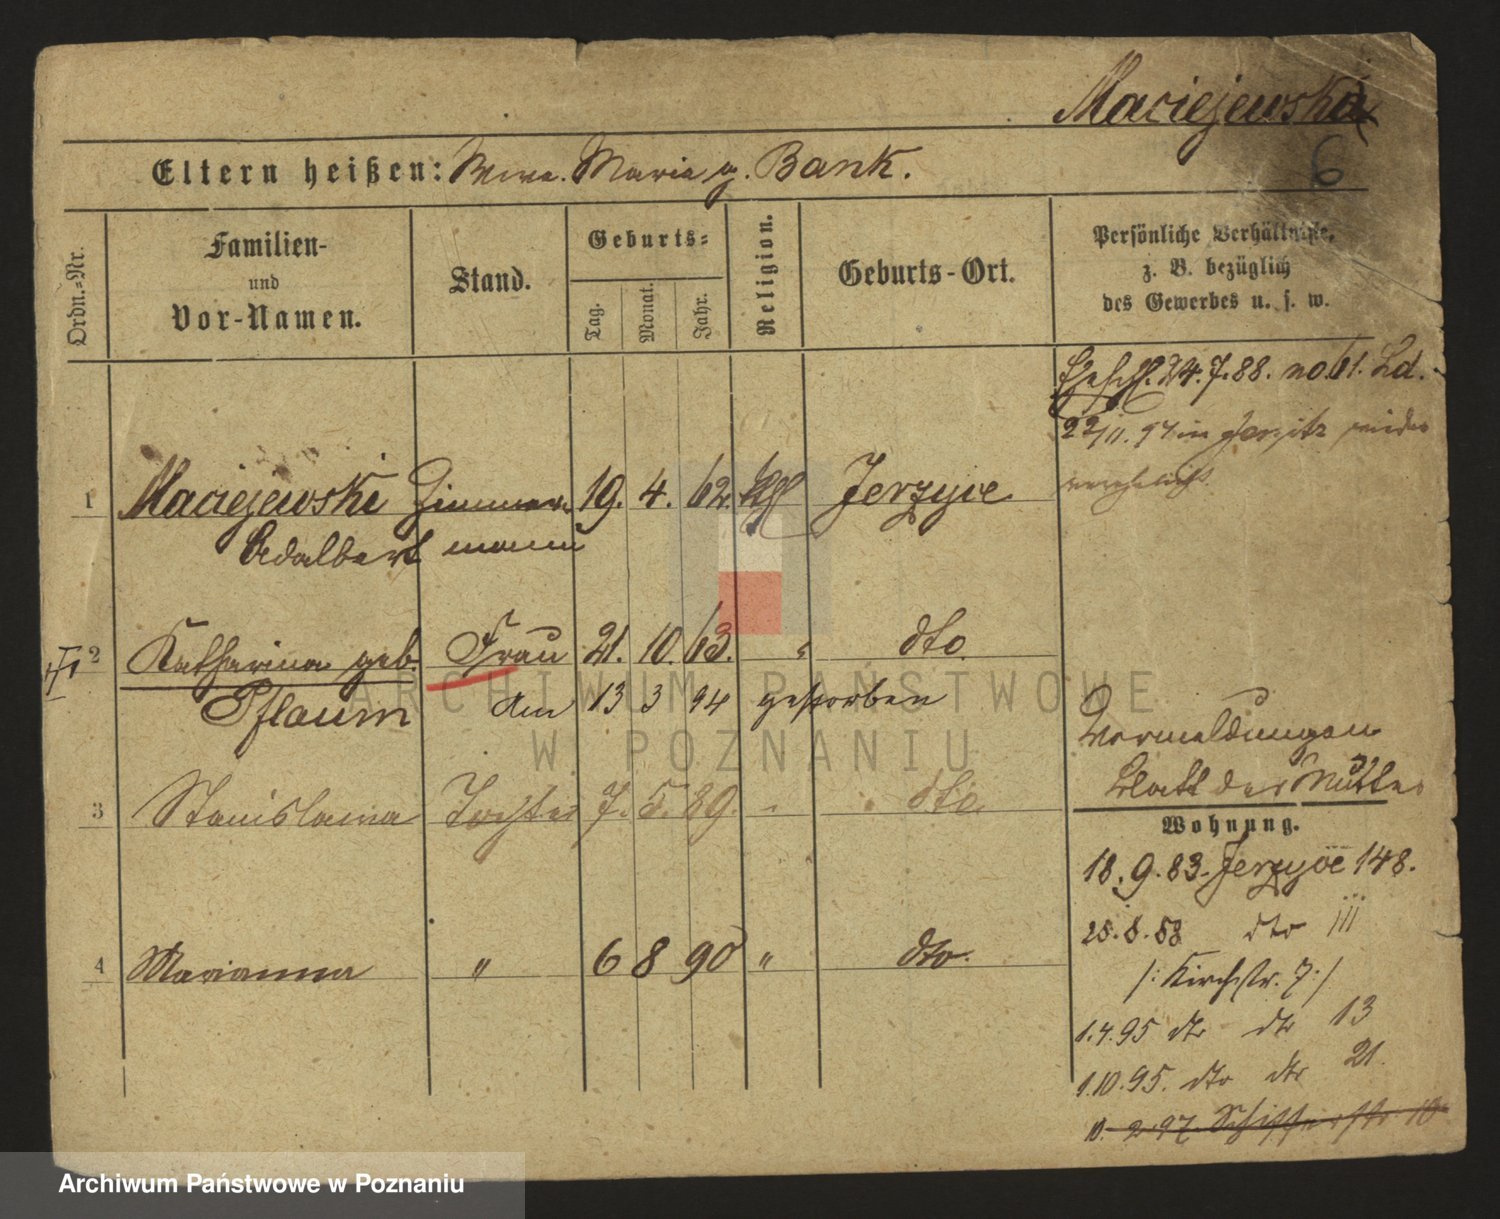 Maciejewski
6
Eltern heißen: Wwe. Maria g. Bank.
Ordn.-Nr.
Familien- und Vor-Namen.
Stand.
Geburts-
Tag. Monat. Jahr.
Religion.
Geburts-Ort.
Persönliche Verhältnisse,
z. B. bezüglich
des Gewerbes u. s. w.
Ehesch. 24.7.88. no. 61. Ld.
22/11. 94 in Jersitz wieder
verehelicht
1 Maciejewski Zimmer- 19. 4. 62. Jerzyce
Adalbert mann
2 Katharina geb. Frau 21. 10. 63. " dto.
Pflaum am 13 3 94 gestorben
3 Stanislawa Tochter 7. 5. 89. " dto.
4 Marianna " 6 8 90 " dto.
Vormeldungen
Blatt der Mutter
Wohnung.
18. 9. 83. Jerzyce 148.
25. 8. 88 dto 111
/: Kirchstr. 7 :/
1.4.95 dto dto 13
1.10.95. dto dto 21.
10. 2. 97. Schifferstr. 10
ARCHIWUM PAŃSTWOWE
W POZNANIU
Archiwum Państwowe w Poznaniu